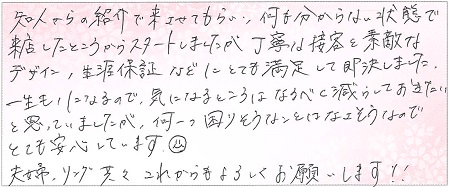 知人からの紹介で来させてもらい、何も分からない状態で
来店したところからスタートしましたが丁寧な接客と素敵な
デザイン、生涯保証などにとても満足して即決しました。
一生モノになるので、気になるところはなるべく減らしておきたい
と思っていましたが、何一つ困りそうなことはなさそうなので
とても安心しています。
夫婦、リング共々これからもよろしくお願いします!!